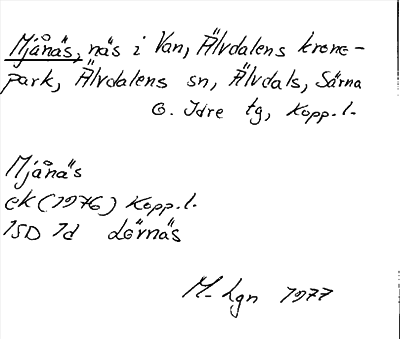 Mjånäs, näs i Van, Älvdalens krono-
park, Älvdalens sn, Älvdals, Särna
o. Idre tg, Kopp.l.
Mjånäs
ek (1976) Kopp.l.
15D 1d Lörnäs
M-Lgn 1977